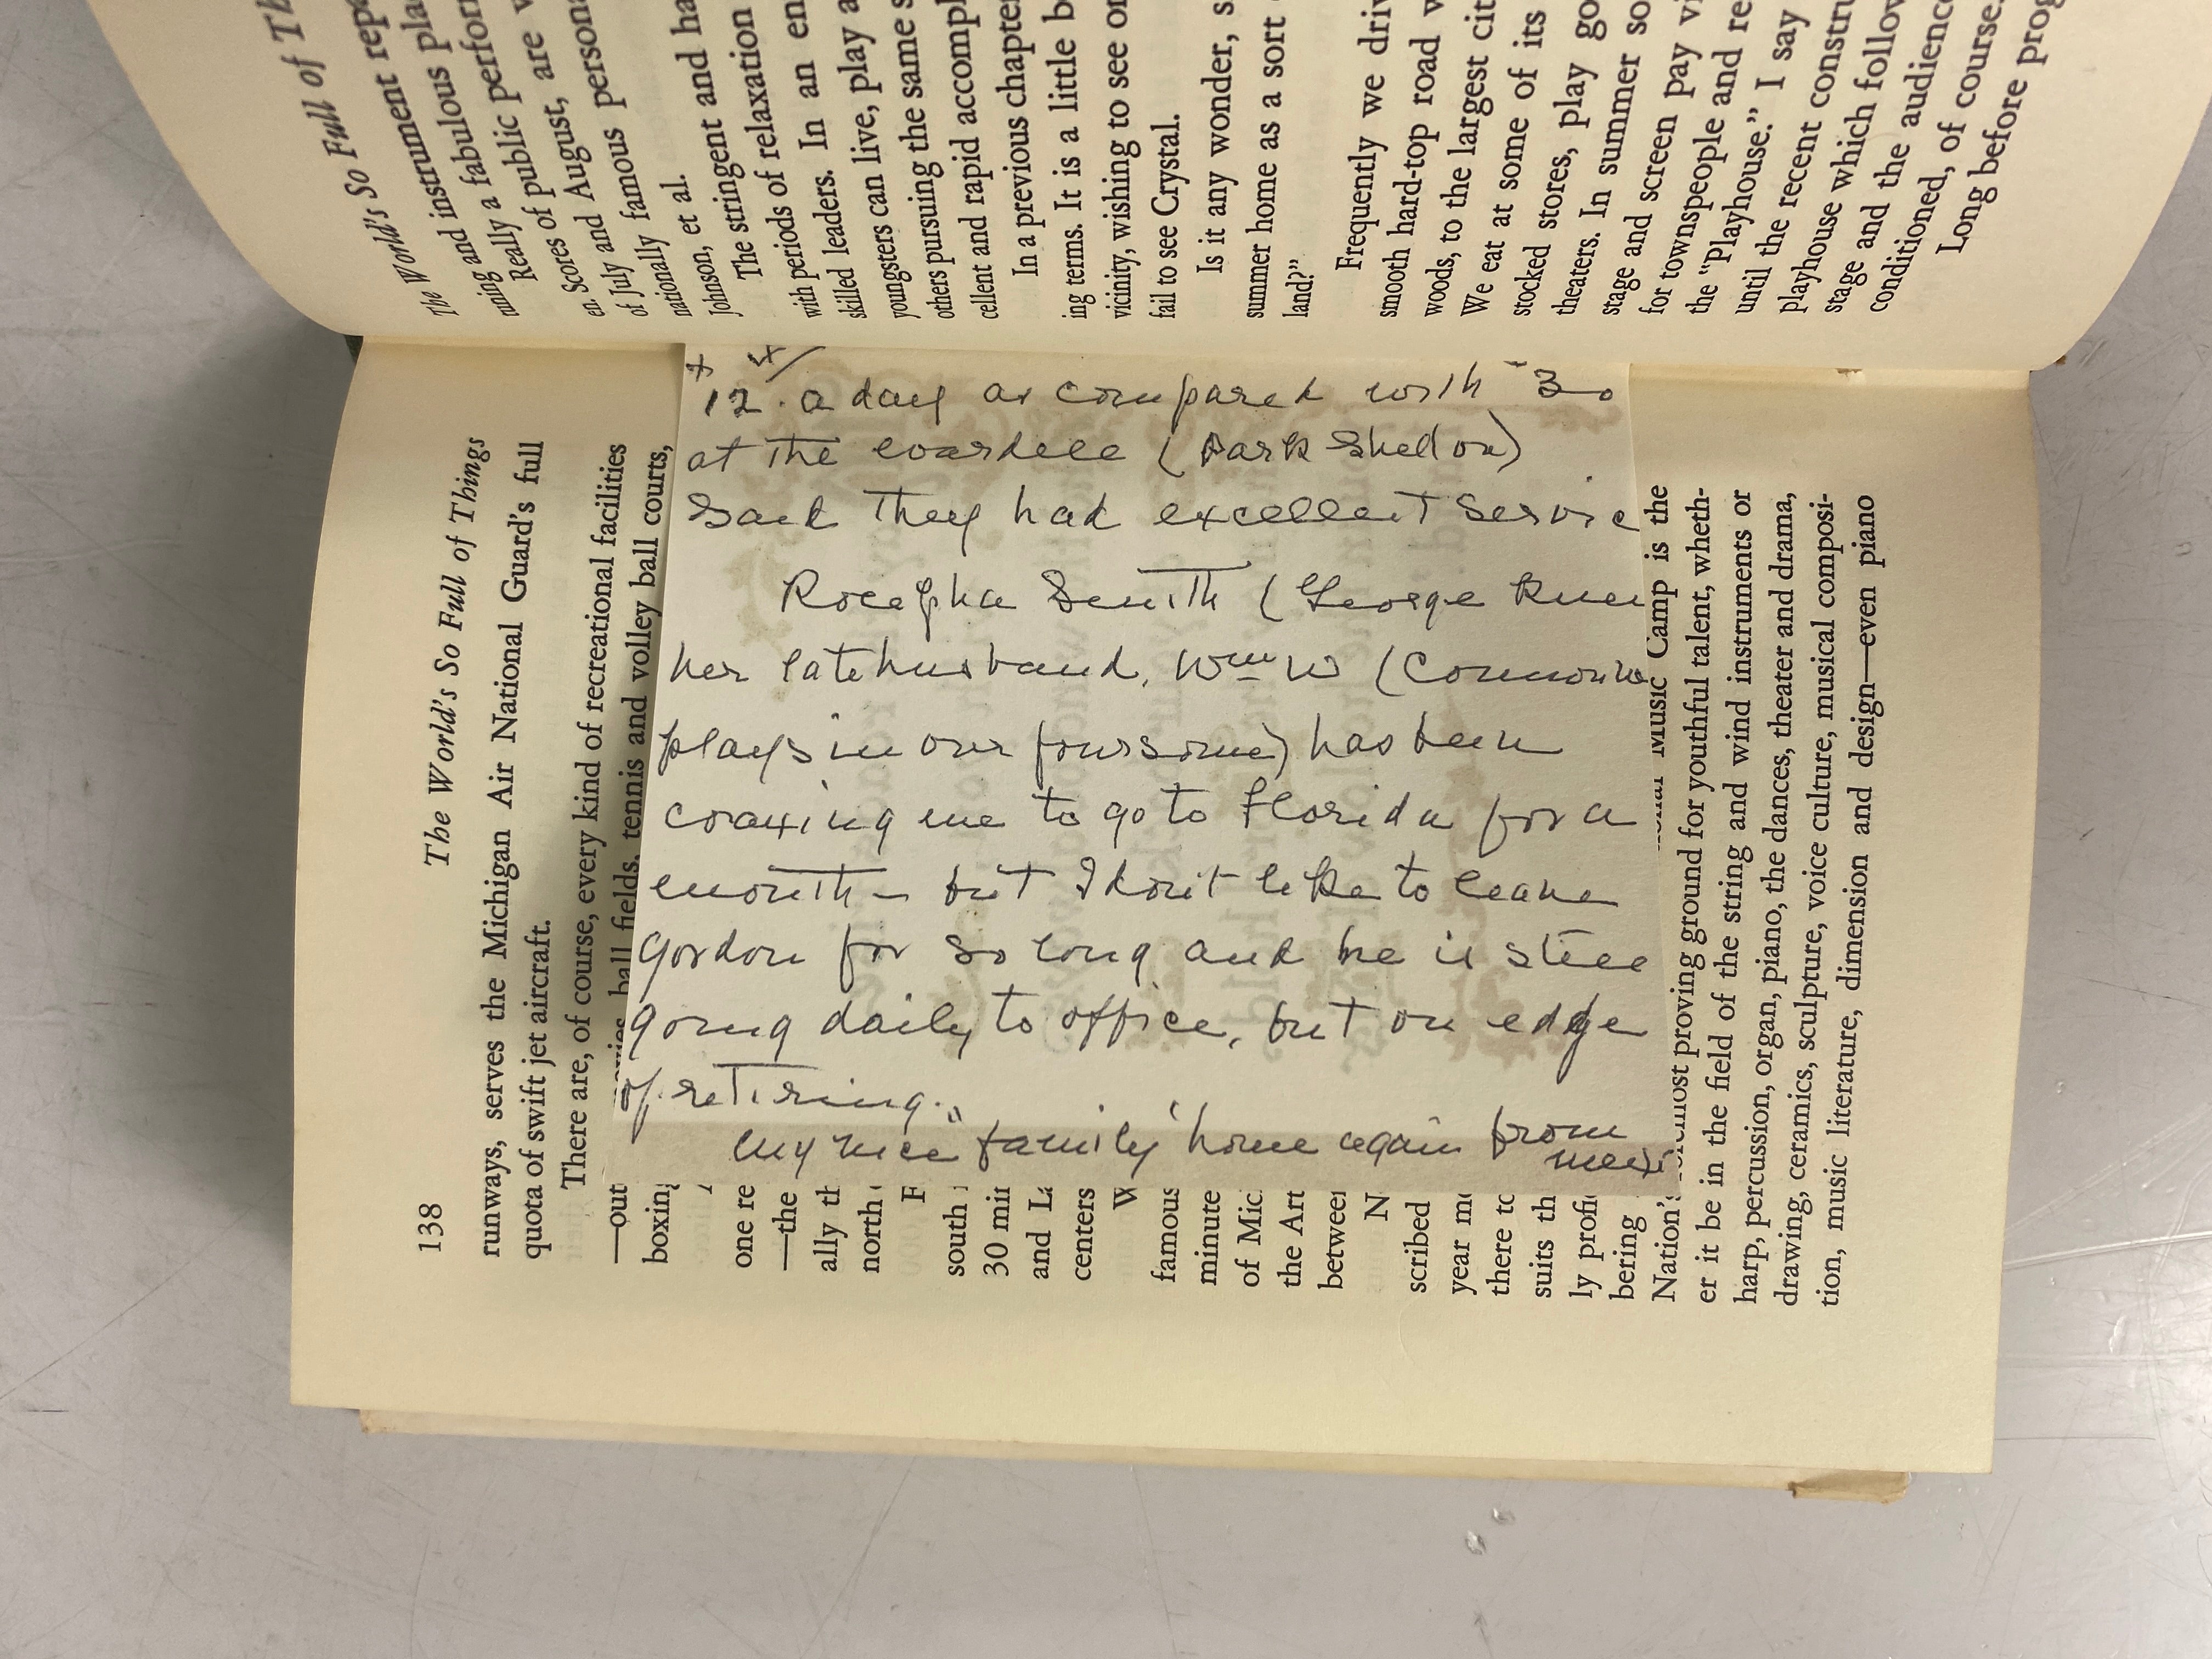 12. a day as compared with 30
at the Wardell (Park Shelton)
Said they had excellent servic
Smith (George
her late husband, Wm W (Commonw
plays in our foursome) has been
coaxing me to go to Florida for a
month - but I don't like to leave
Gordon for so long and he is still
going daily to office, but on edge
of retiring.
My nice "family" home again from
Mexi
138
The World's So Full of Things
runways, serves the Michigan Air National Guard's full
quota of swift jet aircraft.
There are, of course, every kind of recreational facilities
—out
movies, ball fields, tennis and volley ball courts,
boxing
one re
—the
ally th
north
F
south
30 min
and La
centers
W
famous
minute
of Mic
the Art
between
N
scribed
year
there to
suits th
ly profi
bering
Music Camp is the
Nation's foremost proving ground for youthful talent, wheth-
er it be in the field of the string and wind instruments or
harp, percussion, organ, piano, the dances, theater and drama,
drawing, ceramics, sculpture, voice culture, musical composi-
tion, music literature, dimension and design—even piano
The World's So Full of Th
The World's So Full
instrument repe
ning and fabulous pla
a public perform
Really
Scores of public, are w
of July and August, persona
nationally famous
Johnson, et al.
The stringent and ha
with periods of relaxation
skilled leaders. In an en
youngsters can live, play a
others pursuing the same s
cellent and rapid accompl
In a previous chapter
ing terms. It is a little b
vicinity, wishing to see or
fail to see Crystal.
Is it any wonder, s
summer home as a sort
land?"
Frequently we driv
smooth hard-top road w
woods, to the largest cit
We eat at some of its
stocked stores, play go
theaters. In summer so
stage and screen pay vi
for townspeople and re
the "Playhouse." I say
until the recent constru
playhouse which follow
stage and the audience
conditioned, of course.
Long before prog